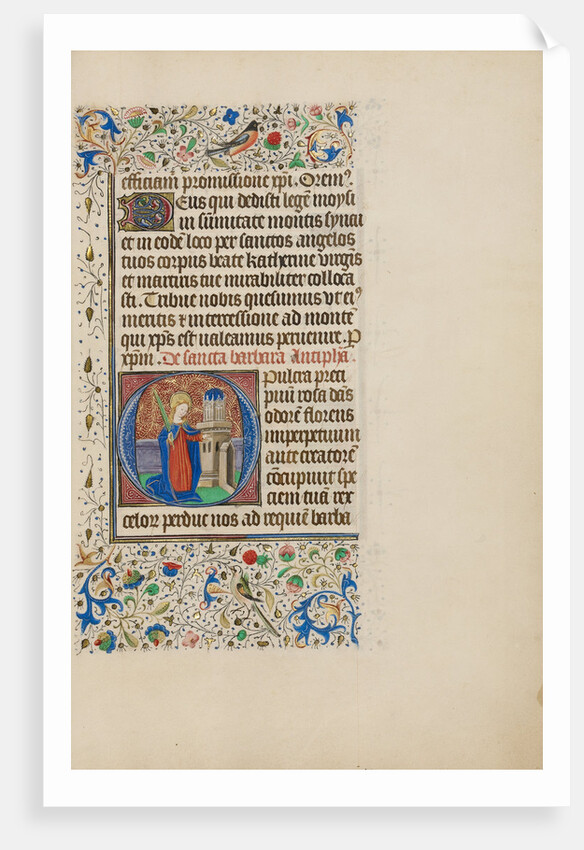 efficiam promissione xpi. Orem9
Deus qui dedisti legē moysi
in sūmitate montis synai
et in eodē loco per sanctos angelos
tuos corpus beate katherine virgīs
et martiris tue mirabiliter colloca
sti. Tribue nobis quesumus vt ei9
meritis & intercessione ad montē
qui xp̄s est valeamus peruenire. P
xp̄m. De sancta barbara Antipha.
Pulcra preci
puū rosa dās
odorē florens
imperpetuum
ante creatorē
cōcupiuit spe
ciem tuā rex
celoꝝ perduc nos ad requiē barba